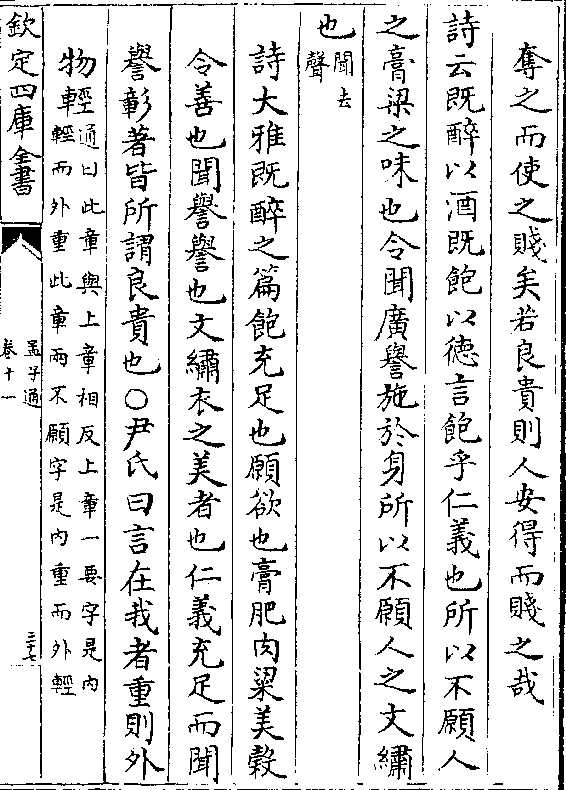 奪之而使之賤矣若良貴則人安得而賤之哉
詩云既醉以酒既飽以德言飽乎仁義也所以不願人
之膏粱之味也令聞廣譽施於身所以不願人之文繡
也聞去聲
詩大雅既醉之篇飽充足也願欲也膏肥肉粱美穀
令善也聞譽譽也文繡衣之美者也仁義充足而聞
譽彰著皆所謂良貴也○尹氏曰言在我者重則外
物輕通曰此章與上章相反上章一要字是内
輕而外重此章兩不願字是内重而外輕
欽定四庫全書
孟子通
卷十一
三十七